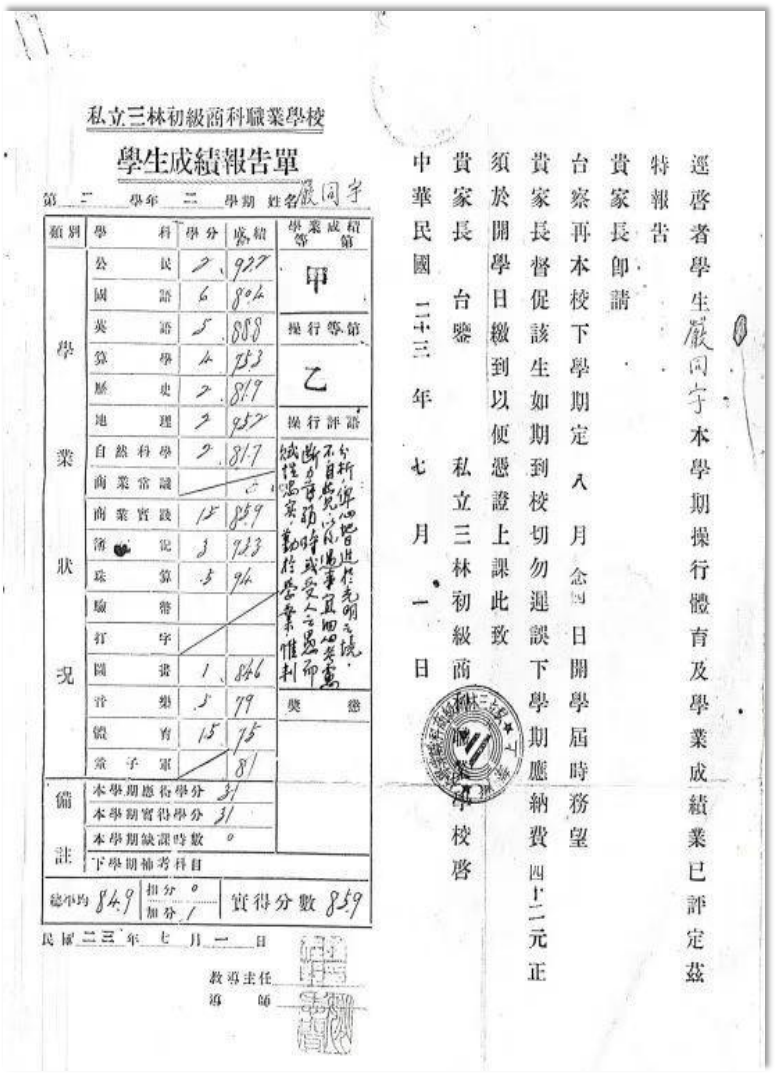 私立三林初級商科職業學校
學生成績報告單
第二學年二學期 姓名嚴同宇
類別 學科 學分 成績 學業成績等第
學業狀況
公民 2 92.2
國語 6 80.4
英語 5 88.8
算學 4 75.3
歷史 2 81.9
地理 2 95.2
自然科學 2 81.7
商業常識
商業實踐 1.5 85.9
簿記 3 93.3
珠算 .5 94
驗幣
打字
圖畫 1 84.6
音樂 .5 79
體育 1.5 75
童子軍 81
甲
操行等第
乙
操行評語
賦性忠實，勤於學業，惟判
斷力薄弱，時或受人之愚而
不自知，以後遇事宜細心考慮
分析，俾心地日進於光明之境。
獎懲
備註
本學期應得學分 31
本學期實得學分 31
本學期缺課時數 0
下學期補考科目
總平均 84.9 扣分 0 加分 1 實得分數 85.9
民國二三年七月一日
教導主任
導師
逕啓者學生嚴同宇本學期操行體育及學業成績業已評定茲
特報告
貴家長卽請
台察再本校下學期定八月念四日開學屆時務望
貴家長督促該生如期到校切勿遲誤下學期應納費四十二元正
須於開學日繳到以便憑證上課此致
貴家長 台鑒 私立三林初級商科職業學校啓
中華民國二十三年七月一日